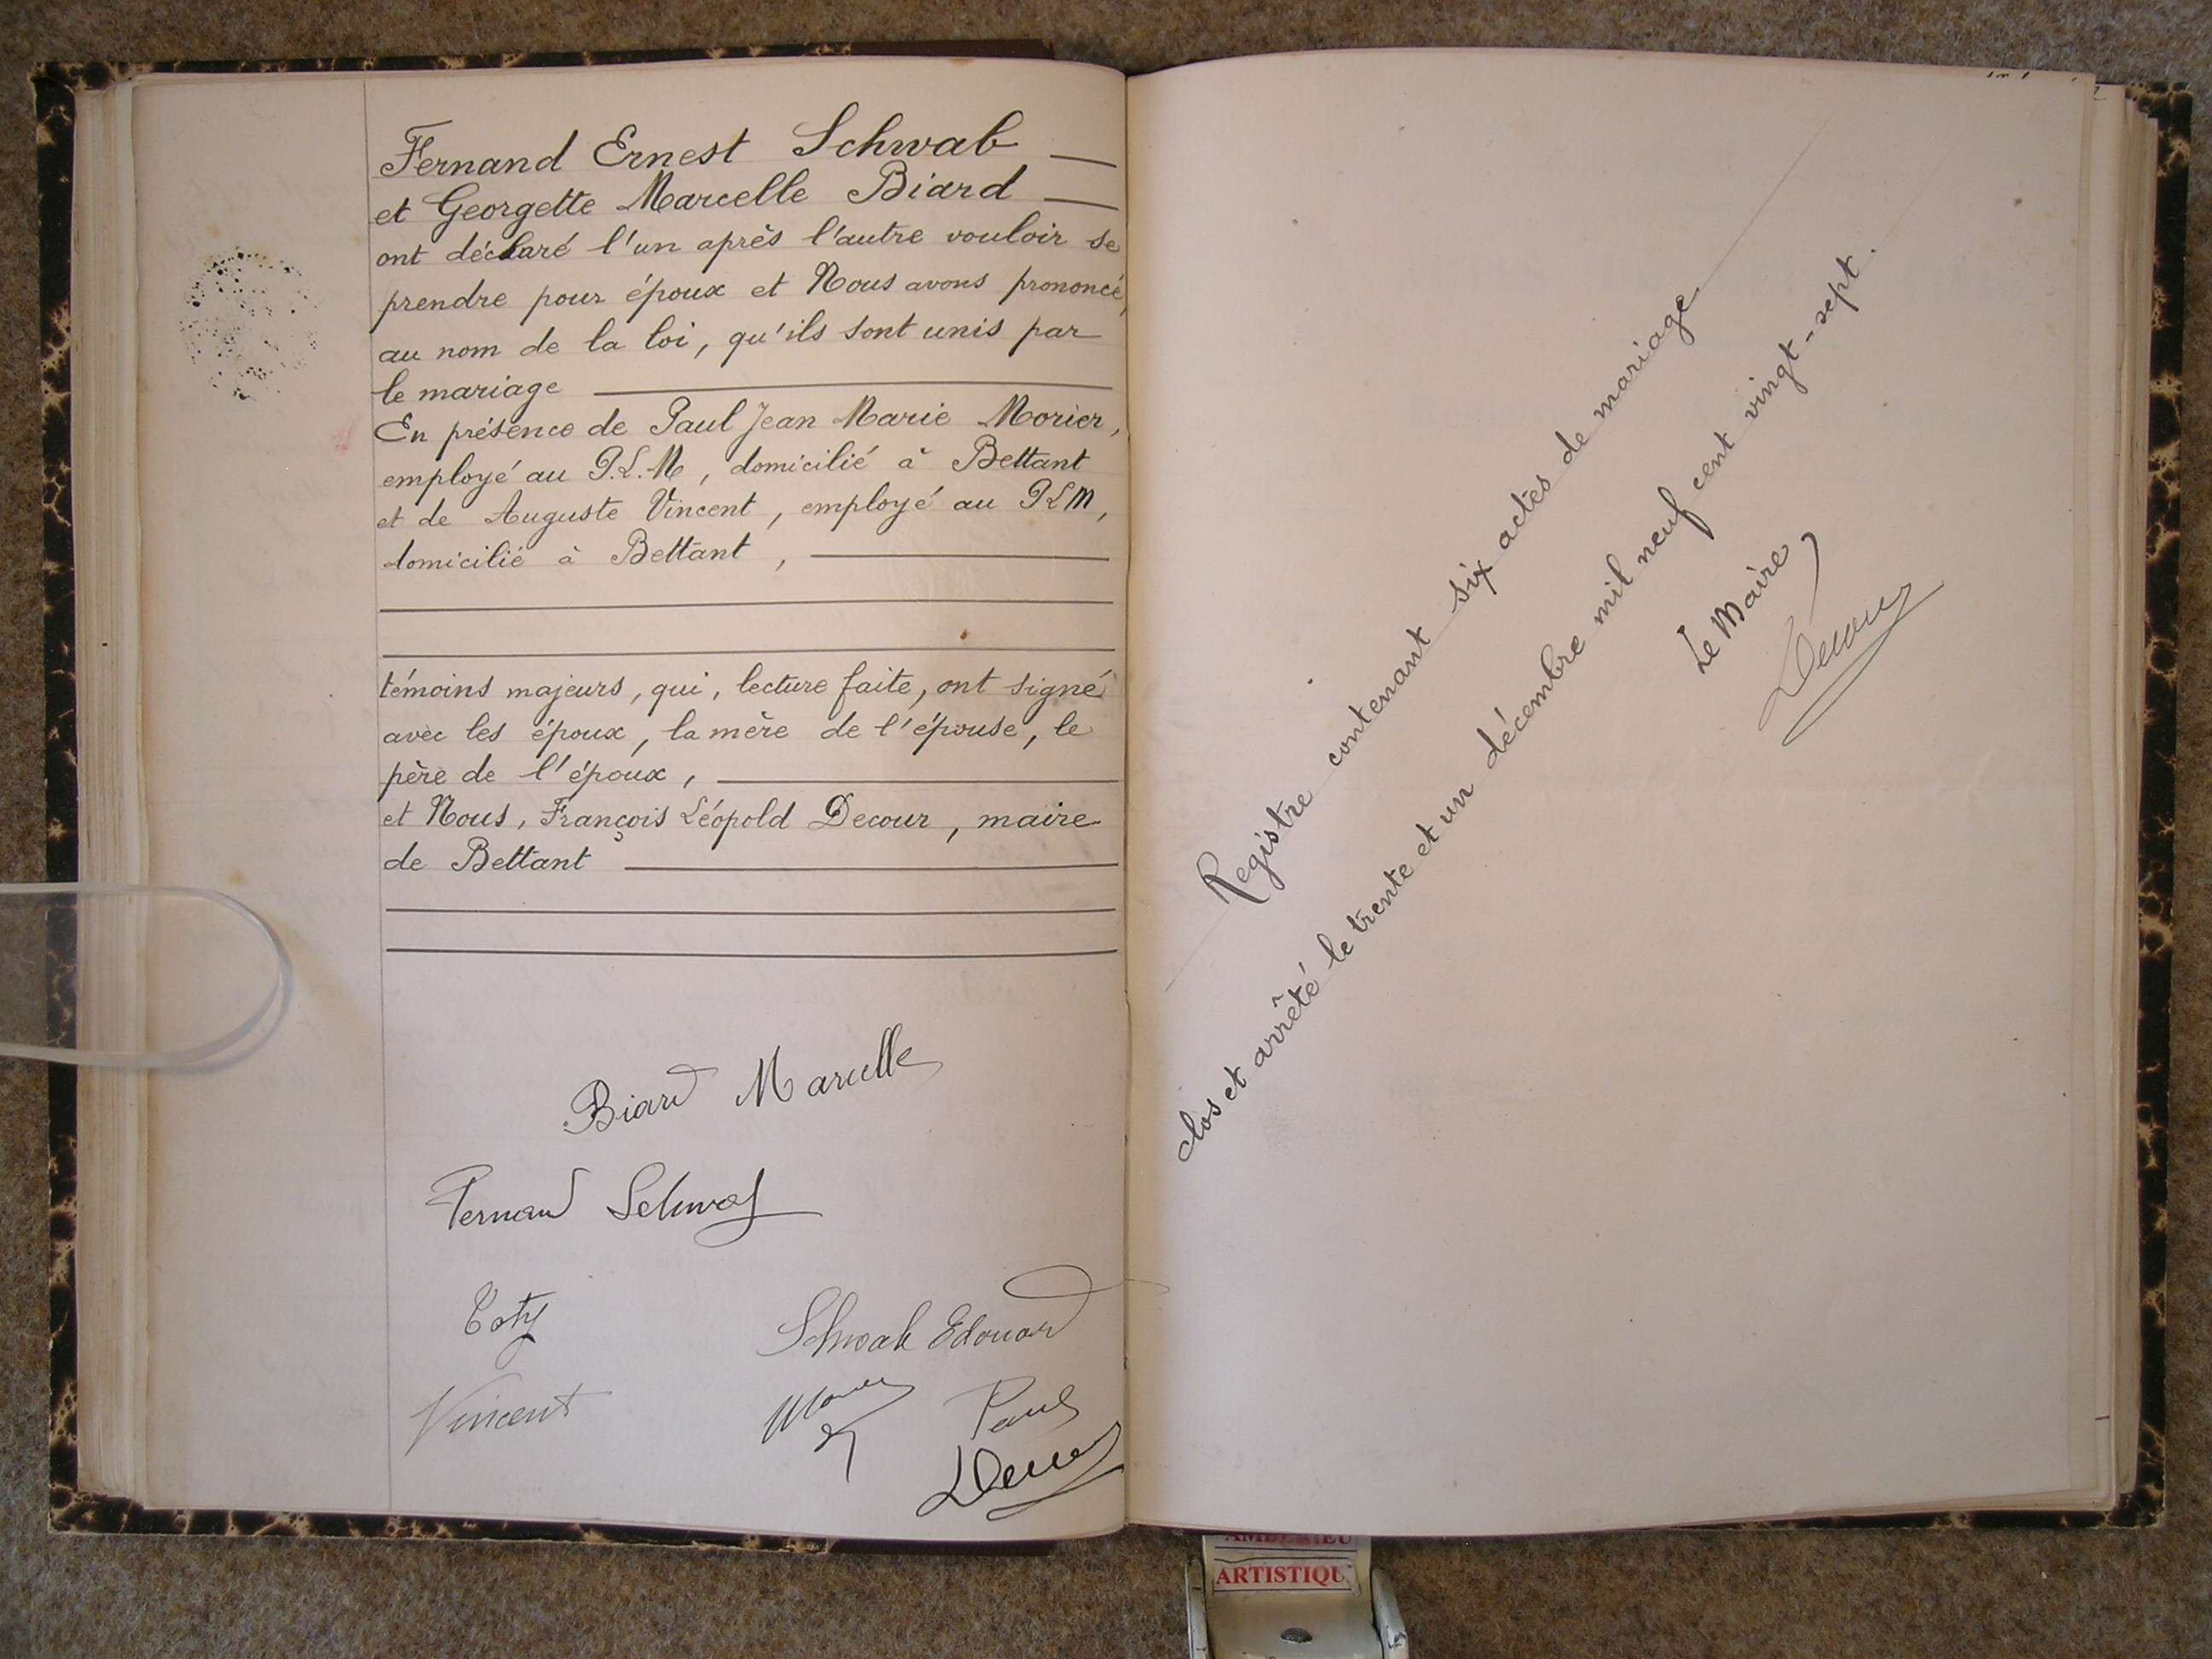 Fernand Ernest Schwab
et Georgette Marcelle Biard
ont déclaré l'un après l'autre vouloir se
prendre pour époux et Nous avons prononcé,
au nom de la loi, qu'ils sont unis par
le mariage
En présence de Paul Jean Marie Morier,
employé au P.L.M, domicilié à Bettant
et de Auguste Vincent, employé au PLM,
domicilié à Bettant,
témoins majeurs, qui, lecture faite, ont signé
avec les époux, la mère de l'épouse, le
père de l'époux,
et Nous, François Léopold Decour, maire
de Bettant
Biard Marcelle
Fernand Schwab
Coty
Schwab Edouard
Vincent
Paul
Decour
Registre contenant six actes de mariage
clos et arrêté le trente et un décembre mil neuf cent vingt-sept.
Le Maire,
Decour
AMBERIEU
ARTISTIQU